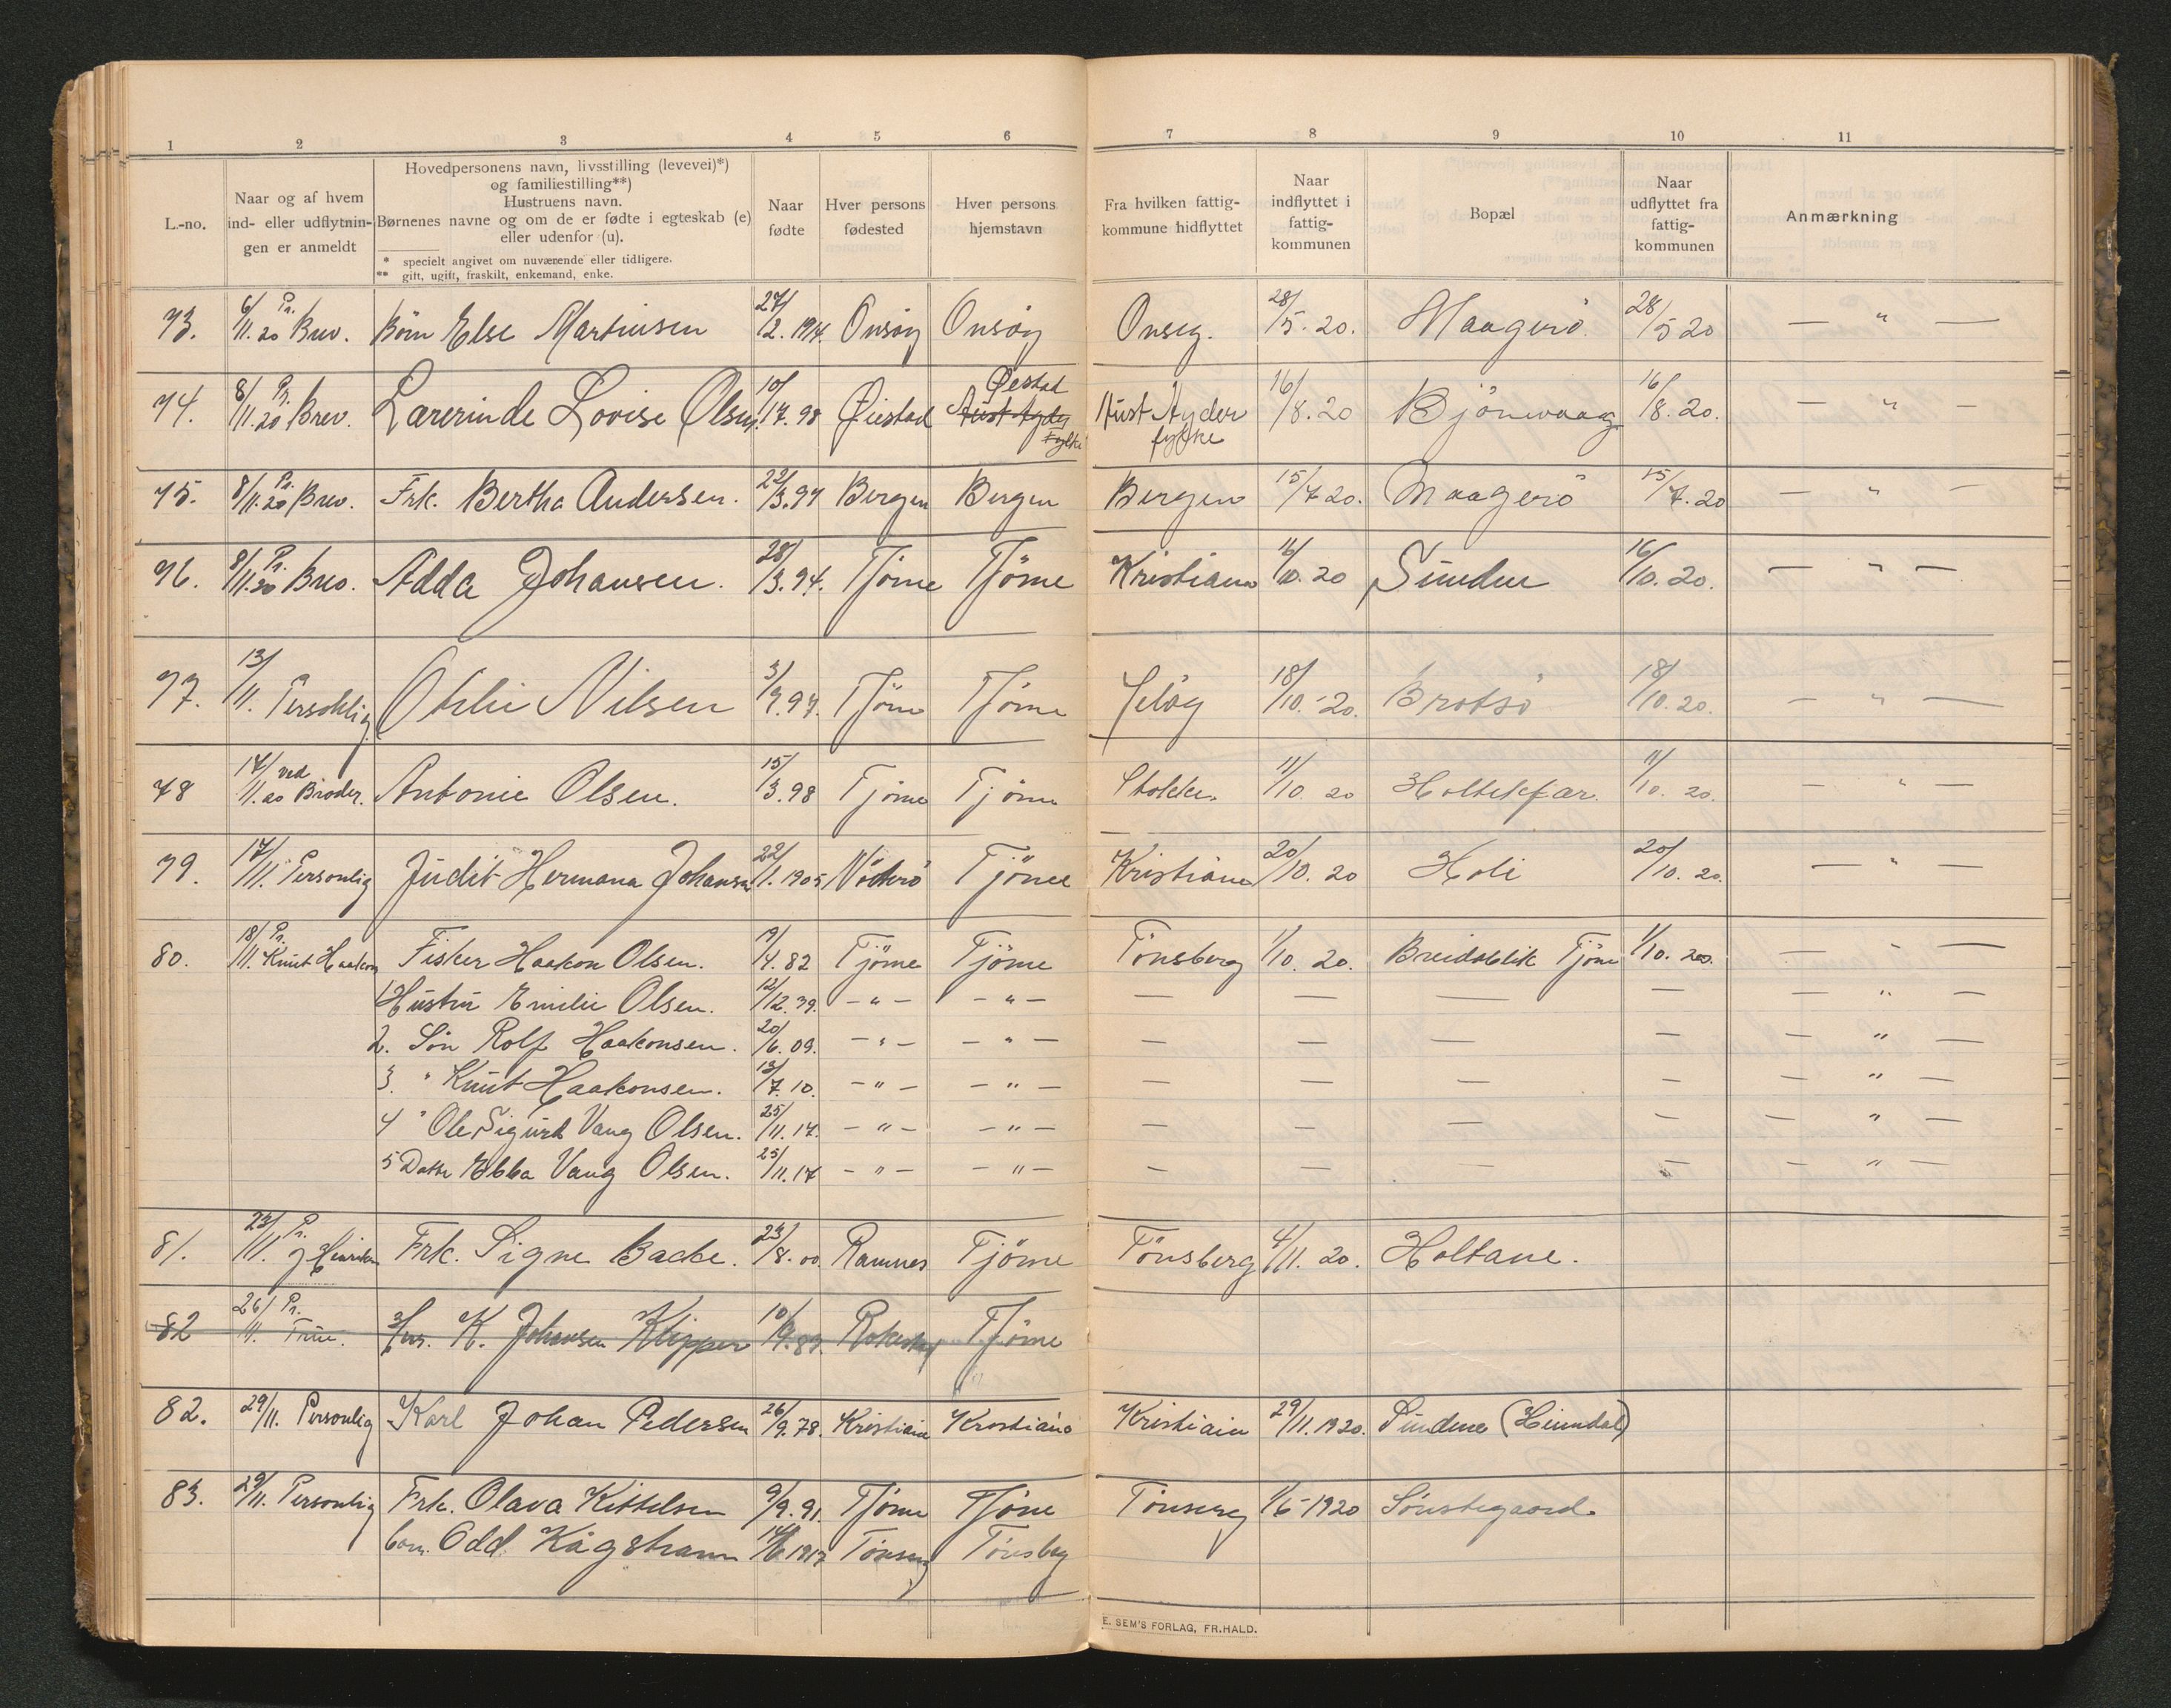 1 2 3 4 5 6 7 8 9 10 11
L.-no.
Naar og af hvem
ind- eller udflytnin-
gen er anmeldt
Hovedpersonens navn, livsstilling (levevei)*)
og familiestilling**)
Hustruens navn.
Børnenes navne og om de er fødte i egteskab (e)
eller udenfor (u).
* specielt angivet om nuværende eller tidligere.
** gift, ugift, fraskilt, enkemand, enke.
Naar
fødte
Hver persons
fødested
Hver persons
hjemstavn
Fra hvilken fattig-
kommune hidflyttet
Naar
indflyttet i
fattig-
kommunen
Bopæl
Naar
udflyttet fra
fattig-
kommunen
Anmærkning
73. 6/11.20 Pr. Brev. Barn Else Martinsen 27/2.1914. Onsøy Onsøy Onsøy. 28/5.20. Maagerö. 28/5 20 — " —
74. 8/11.20 Pr. Brev. Lærerinde Lovise Olsen. Øiestad Øestad Aust Agder fylke Aust Agder fylke 16/8.20 Bjönevaag 16/8.20. — " —
75. 8/11.20 Pr. Brev. Frk. Bertha Andersen. 22/3.97 Bergen Bergen Bergen 15/7 20. Maagerö 15/7.20 — " —
76. 8/11.20 Pr. Brev. Adda Johansen. 28/3.94. Tjöme Tjöme Kristiania 16/10.20 Sundene 16/10.20. — " —
77. 13/11. Personlig Otilie Nilsen 3/7.97. Tjöme Tjöme 18/10.-20. Brotsö 18/10.20. — " —
78 17/11.20 ved Broder. Antonie Olsen. 15/3.98 Tjöme Tjöme Stokke. 11/10 20 11/10. 20. — " —
79. 17/11. Personlig Judit Hermana Johansen 22/1.1905 Nötterö Tjöme Kristiania 20/10.20 Hole 20/10. 20. — " —
80. 18/11. Pr. Knut Haakon Fisker Haakon Olsen. 19/4.82 Tjöme Tjöme Tönsberg 1/10.20. Breidablik Tjöme 1/10.20. — " —
1 Hustru Emilie Olsen. 12/12.79. — " — — " — — — — — — " —
2. Sön Rolf Haakonsen. 20/6.09. — " — — " — — — — — — " —
3. " Knut Haakonsen. 13/7.10. — " — — " — — — — — — " —
4 " Ole Sigurd Vang Olsen. 25/11.17. — " — — " — — — — — — " —
5 Datter Ebba Vang Olsen. 25/11.17 — " — — " — — — — — — " —
81. 23/11. Pr. J Henriksen Frk. Signe Backe. 23/8.00. Ramnes Tjöme Tönsberg 4/11.20. Holtane.
82 26/11. Pr. K. Johansen Klipper Tjöme
82. 29/11. Personlig Karl Johan Pedersen 26/9.78. Kristiania Kristiania Kristiania 29/11.1920. Sundene (Heimdal)
83. 29/11. Personlig Frk. Olava Kittelsen 9/9.91. Tjöme Tjöme Tönsberg 1/6-1920 Sönstegaard.
barn. Odd Kågstram Tönsberg Tönsberg
E. SEM'S FORLAG, FR.HALD.